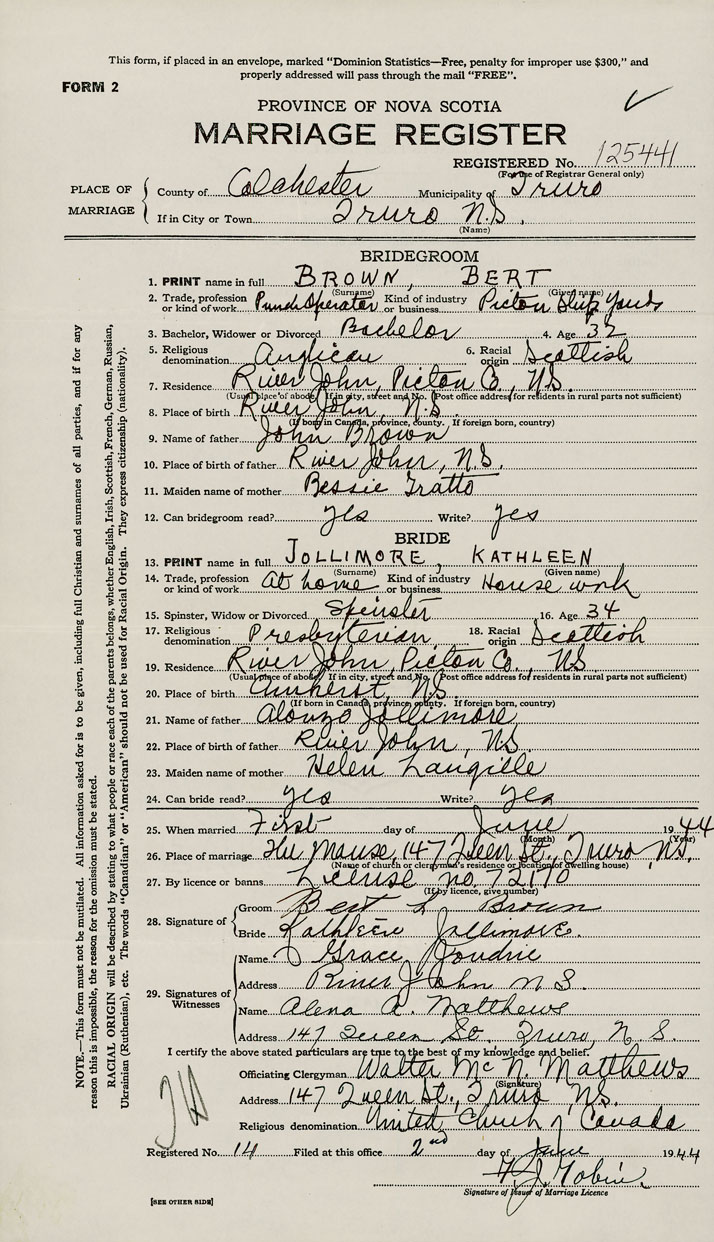 This form, if placed in an envelope, marked "Dominion Statistics—Free, penalty for improper use $300," and
properly addressed will pass through the mail "FREE".
FORM 2
PROVINCE OF NOVA SCOTIA
MARRIAGE REGISTER
REGISTERED No. 125441
(For use of Registrar General only)
PLACE OF MARRIAGE
County of Colchester Municipality of Truro
If in City or Town Truro N.S.
(Name)
BRIDEGROOM
1. PRINT name in full BROWN, BERT
(Surname) (Given name)
2. Trade, profession or kind of work Punch Operator Kind of industry or business Pictou Ship Yards
3. Bachelor, Widower or Divorced Bachelor 4. Age 32
5. Religious denomination Anglican 6. Racial origin Scottish
7. Residence River John, Pictou Co., N.S.
(Usual place of abode. If in city, street and No. Post office address for residents in rural parts not sufficient)
8. Place of birth River John, N.S.
(If born in Canada, province, county. If foreign born, country)
9. Name of father John Brown
10. Place of birth of father River John, N.S.
11. Maiden name of mother Bessie Tratto
12. Can bridegroom read? yes Write? yes
BRIDE
13. PRINT name in full JOLLIMORE, KATHLEEN
(Surname) (Given name)
14. Trade, profession or kind of work At home Kind of industry or business House work
15. Spinster, Widow or Divorced Spinster 16. Age 34
17. Religious denomination Presbyterian 18. Racial origin Scottish
19. Residence River John, Pictou Co., N.S.
(Usual place of abode. If in city, street and No. Post office address for residents in rural parts not sufficient)
20. Place of birth Amherst, N.S.
(If born in Canada, province, county. If foreign born, country)
21. Name of father Alonzo Jollimore
22. Place of birth of father River John, N.S.
23. Maiden name of mother Helen Langille
24. Can bride read? yes Write? yes
25. When married First day of June 1944
(Month) (Year)
26. Place of marriage The Manse, 147 Queen St., Truro N.S.
(Name of church or clergyman's residence or location of dwelling house)
27. By licence or banns License no. 72170
(If by licence, give number)
28. Signature of
Groom Bert L Brown
Bride Kathleen Jollimore.
29. Signatures of Witnesses
Name Grace
Address River John N.S.
Name Alena A. Matthews
Address 147 Queen St. Truro, N.S.
I certify the above stated particulars are true to the best of my knowledge and belief.
Officiating Clergyman Walter McN. Matthews
(Signature)
Address 147 Queen St., Truro N.S.
Religious denomination United Church of Canada
Registered No. 14 Filed at this office 2nd day of June 1944
Signature of Issuer of Marriage Licence
[SEE OTHER SIDE]
NOTE.—This form must not be mutilated. All information asked for is to be given, including full Christian and surnames of all parties, and if for any
reason this is impossible, the reason for the omission must be stated.
RACIAL ORIGIN will be described by stating to what people or race each of the parents belongs, whether English, Irish, Scottish, French, German, Russian,
Ukrainian (Ruthenian), etc. The words "Canadian" or "American" should not be used for Racial Origin. They express citizenship (nationality).